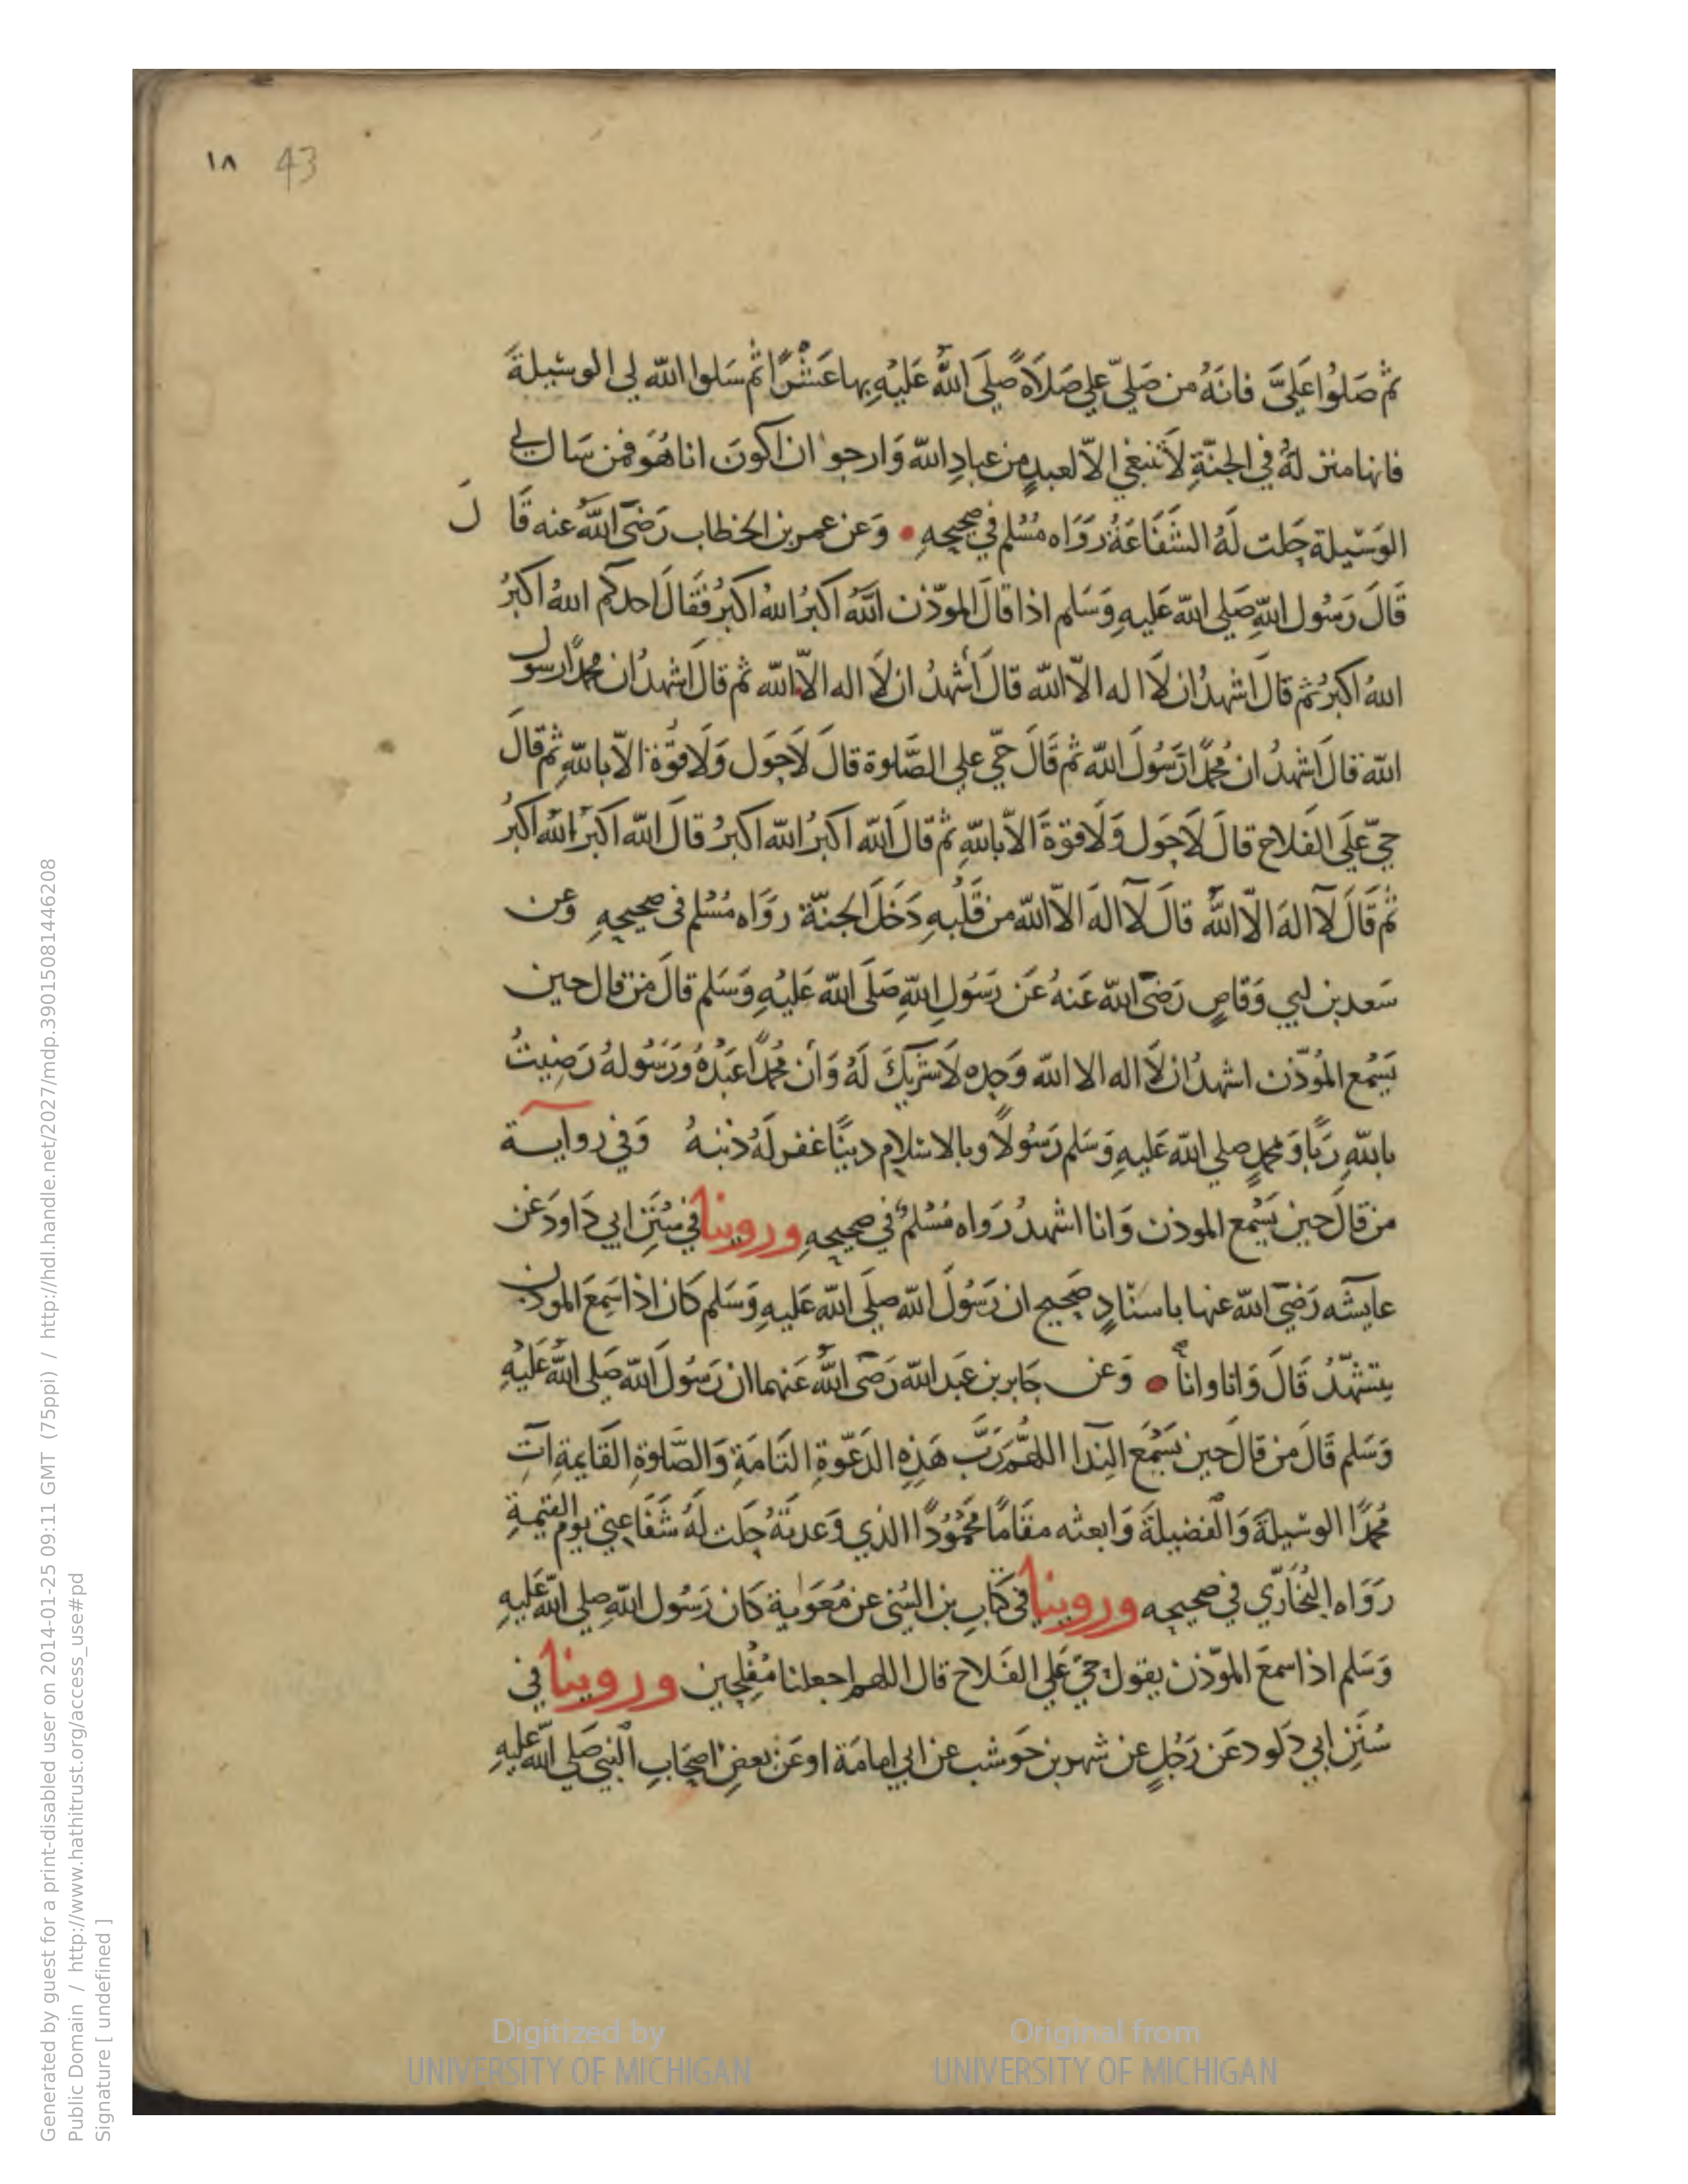 ١٨ 43
ثم صَلوُا عَلَيَّ فانهُ من صَليّ علي صَلاَةً صَلَي اللهُ عَلَيْهِ بها عَشْرًا ثم سَلوا الله لي الوسيلةَ
فانها منزلةٌ في الجنّةِ لاَ تنبغي الاّ لعبدٍ من عبادِ الله وَارجوا ان اكونَ انا هُوَ فمن سَال لي
الوَسيلة حَلت لَهُ الشَفَاعَةُ رَوَاه مُسْلم في صحيحِهِ • وَعن عمر بن الخطاب رَضَي اللهُ عنه قَا لَ
قَالَ رَسُول اللهِ صَلي الله عَليهِ وَسَلم اذا قالَ الموذّن اللهُ اكبَرُ اللهُ اكبرُ فَقَالَ احدكم اللهُ اكبرُ
اللهُ اكبرُ ثم قالَ اشهدُ ان لاَ اله الاّ الله قالَ أشهدُ ان لاَ اله الاّ الله ثم قالَ اشهدُ ان محمدًا رسول
الله قالَ اشهدُ ان مُحمدًا رَسُولَ الله ثم قَالَ حَيّ علي الصَّلوة قالَ لاَ حَول وَلاَ قوَّة الاّ باللهِ ثم قالَ
حيّ عَلَي الفَلاح قالَ لاَ حَول وَلاَ قوةَ الاّ باللهِ ثم قالَ الله اكبرُ الله اكبرُ قالَ الله اكبرُ الله اكبرُ
ثم قَالَ لاَ الهَ الاّ اللهُ قالَ لآ الهَ الاّ الله من قَلبهِ دَخَلَ الجنّة روَاه مُسْلم في صحيحِهِ وَعن
سَعد بن ابي وَقاصٍ رَضَي الله عَنهُ عَن رَسُولِ اللهِ صَلَي الله عَليْهِ وَسَلم قالَ من قال حين
يَسْمع المُوذّن اشهدُ ان لاَ اله الا الله وَحده لاَ شَريكَ لَهُ وَأن مُحمدًا عَبْدُهُ وَرَسُولهُ رَضِيتُ
باللهِ رَبًّا وَمحمدٍ صلي الله عَليهِ وَسَلم رَسُولاً وبالاسْلامِ دينًا غفر لَهُ ذنبهُ وَفي روايـــة
من قالَ حين يَسْمع الموذن وَانا اشهدُ رَوَاه مُسْلمٌ في صحيحِهِ وروينا في سُنَنِ ابي دَاودَ عَن
عايشَه رَضَي الله عنها باسنَادٍ صَحيحٍ ان رَسُولَ الله صلَي الله عَليهِ وَسَلم كَان اذا سَمعَ الموذن
يتشهّدُ قَالَ وَانا وانا • وَعن جَابر بن عَبد الله رَضَي اللهُ عَنهما ان رَسُولَ الله صَلي اللهُ عَليْهِ
وَسَلم قَالَ من قالَ حين يَسْمَع النِدا اللهُمّ رَبَّ هَذِهِ الدَعوةِ التَامَةِ وَالصَّلوةِ القَايمةِ اَتِ
مُحمدًا الوسيلةَ وَالفَضيلَةَ وَابعثه مقَامًا مَحمُودًا الذي وَعدتَهُ حَلت لَهُ شَفَاعتي يوم القيمةِ
رَوَاه البُخَارّي في صحيحِه وروينا في كتَابِ بن السُني عن مُعَوية كَان رَسُول اللهِ صلي الله عَليهِ
وَسَلم اذا سمعَ الموّذن يقول حَيّ عَلي الفَلاح قال اللهم اجعلنا مُفْلِحين وروينا في
سُنَنِ ابي دَاود عَن رَجُلٍ عن شهر بن حَوشب عن ابي امامَة او عَن بعضِ اصحَابِ النبي صَلي الله عليهِ
Digitized by
UNIVERSITY OF MICHIGAN
Original from
UNIVERSITY OF MICHIGAN
Generated by guest for a print-disabled user on 2014-01-25 09:11 GMT (75ppi) / http://hdl.handle.net/2027/mdp.39015081446208
Public Domain / http://www.hathitrust.org/access_use#pd
Signature [ undefined ]